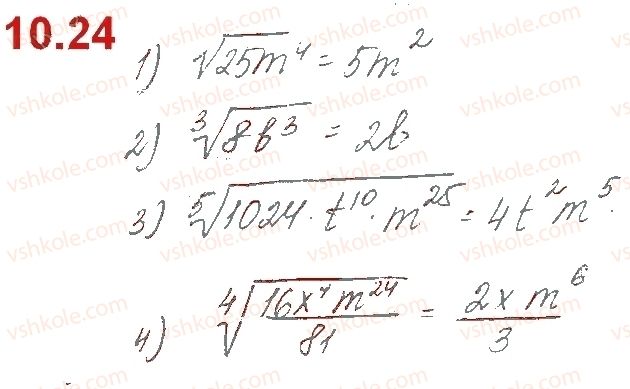 10.24
1) √25m⁴ = 5m²
2) ∛8b³ = 2b
3) ⁵√1024 · t¹⁰ · m²⁵ = 4t²m⁵.
4) ⁴√(16x⁴m²⁴/81) = 2xm⁶/3